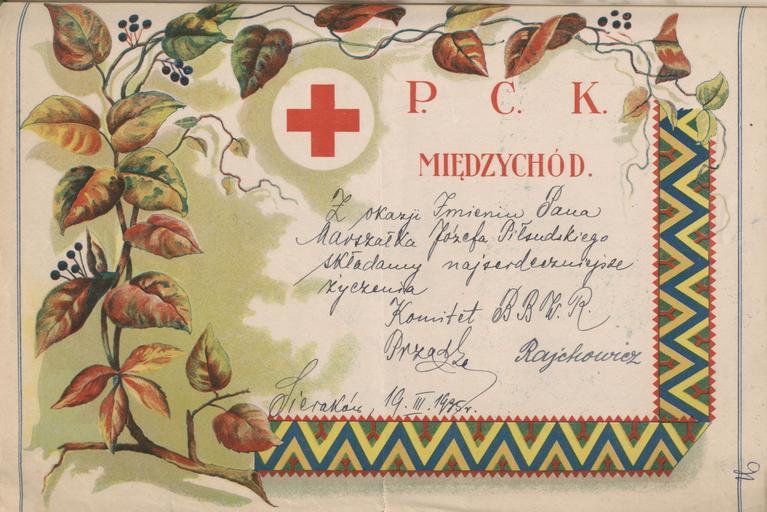 P. C. K.
MIĘDZYCHÓD.
Z okazji Imienin Pana
Marszałka Józefa Piłsudskiego
składamy najserdeczniejsze
życzenia
Komitet B B W. R.
Rajchowicz
Sieraków, 19. III. 1935 r.